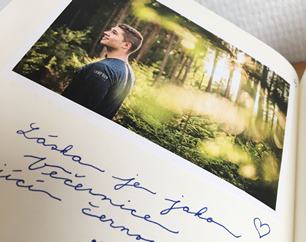 Láska je jako
Večernice
černo